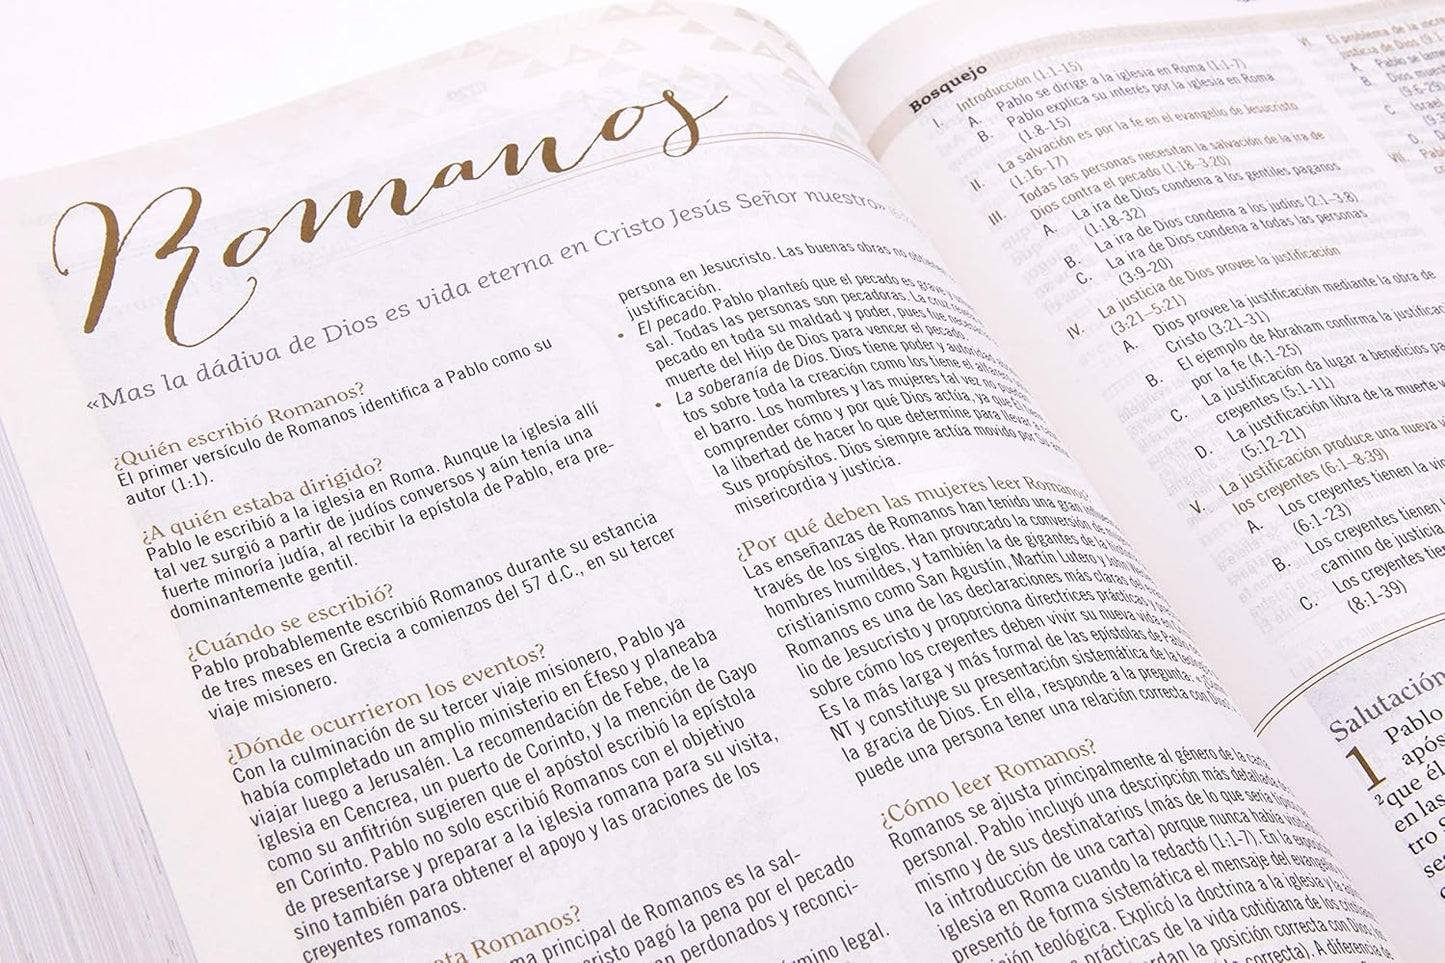 Romanos
«Mas la dádiva de Dios es vida eterna en Cristo Jesús Señor nuestro»
¿Quién escribió Romanos?
El primer versículo de Romanos identifica a Pablo como su
autor (1:1).
¿A quién estaba dirigido?
Pablo le escribió a la iglesia en Roma. Aunque la iglesia allí
tal vez surgió a partir de judíos conversos y aún tenía una
fuerte minoría judía, al recibir la epístola de Pablo, era pre-
dominantemente gentil.
¿Cuándo se escribió?
Pablo probablemente escribió Romanos durante su estancia
de tres meses en Grecia a comienzos del 57 d.C., en su tercer
viaje misionero.
¿Dónde ocurrieron los eventos?
Con la culminación de su tercer viaje misionero, Pablo ya
había completado un amplio ministerio en Éfeso y planeaba
viajar luego a Jerusalén. La recomendación de Febe, de la
iglesia en Cencrea, un puerto de Corinto, y la mención de Gayo
como su anfitrión sugieren que el apóstol escribió la epístola
en Corinto. Pablo no solo escribió Romanos con el objetivo
de presentarse y preparar a la iglesia romana para su visita,
sino también para obtener el apoyo y las oraciones de los
creyentes romanos.
Romanos?
principal de Romanos es la sal-
pagó la pena por el pecado
perdonados y reconci-
término legal.
persona en Jesucristo. Las buenas obras no
justificación.
• El pecado. Pablo planteó que el pecado es grave y
sal. Todas las personas son pecadoras. La cruz
pecado en toda su maldad y poder, pues fue
muerte del Hijo de Dios para vencer el pecado.
• La soberanía de Dios. Dios tiene poder y autoridad
tos sobre toda la creación como los tiene el alfarero
el barro. Los hombres y las mujeres tal vez no
comprender cómo y por qué Dios actúa, ya que
la libertad de hacer lo que determine para llevar a
Sus propósitos. Dios siempre actúa movido por Su
misericordia y justicia.
¿Por qué deben las mujeres leer Romanos?
Las enseñanzas de Romanos han tenido una gran
través de los siglos. Han provocado la conversión de
hombres humildes, y también la de gigantes de la
cristianismo como San Agustín, Martín Lutero y John
Romanos es una de las declaraciones más claras del
lio de Jesucristo y proporciona directrices prácticas y
sobre cómo los creyentes deben vivir su nueva vida en
Es la más larga y más formal de las epístolas de Pablo
NT y constituye su presentación sistemática de la
la gracia de Dios. En ella, responde a la pregunta: «¿Cómo
puede una persona tener una relación correcta con
¿Cómo leer Romanos?
Romanos se ajusta principalmente al género de la carta
personal. Pablo incluyó una descripción más detallada de
mismo y de sus destinatarios (más de lo que sería
la introducción de una carta) porque nunca había
iglesia en Roma cuando la redactó (1:1-7). En la
presentó de forma sistemática el mensaje del
teológica. Explicó la doctrina a la iglesia y la
prácticas de la vida cotidiana de los
la posición correcta con Dios
correcta). A diferencia de
Bosquejo
I. Introducción (1:1-15)
A. Pablo se dirige a la iglesia en Roma (1:1-7)
B. Pablo explica su interés por la iglesia en Roma
(1:8-15)
II. La salvación es por la fe en el evangelio de Jesucristo
(1:16-17)
III. Todas las personas necesitan la salvación de la ira de
Dios contra el pecado (1:18–3:20)
A. La ira de Dios condena a los gentiles paganos
(1:18-32)
B. La ira de Dios condena a los judíos (2:1–3:8)
C. La ira de Dios condena a todas las personas
(3:9-20)
IV. La justicia de Dios provee la justificación
(3:21–5:21)
A. Dios provee la justificación mediante la obra de
Cristo (3:21-31)
B. El ejemplo de Abraham confirma la
por la fe (4:1-25)
C. La justificación da lugar a beneficios
creyentes (5:1-11)
D. La justificación libra de la muerte y
(5:12-21)
V. La justificación produce una nueva
los creyentes (6:1–8:39)
A. Los creyentes tienen la
(6:1-23)
B. Los creyentes tienen
camino de justicia
C. Los creyentes
(8:1-39)
VI. El problema de la
justicia de Dios (9:1
A. Pablo se
B. Dios
(9:6-29)
C. Israel
D.
VII.
Salutación
1 Pablo
após
2 que él
en las
tro